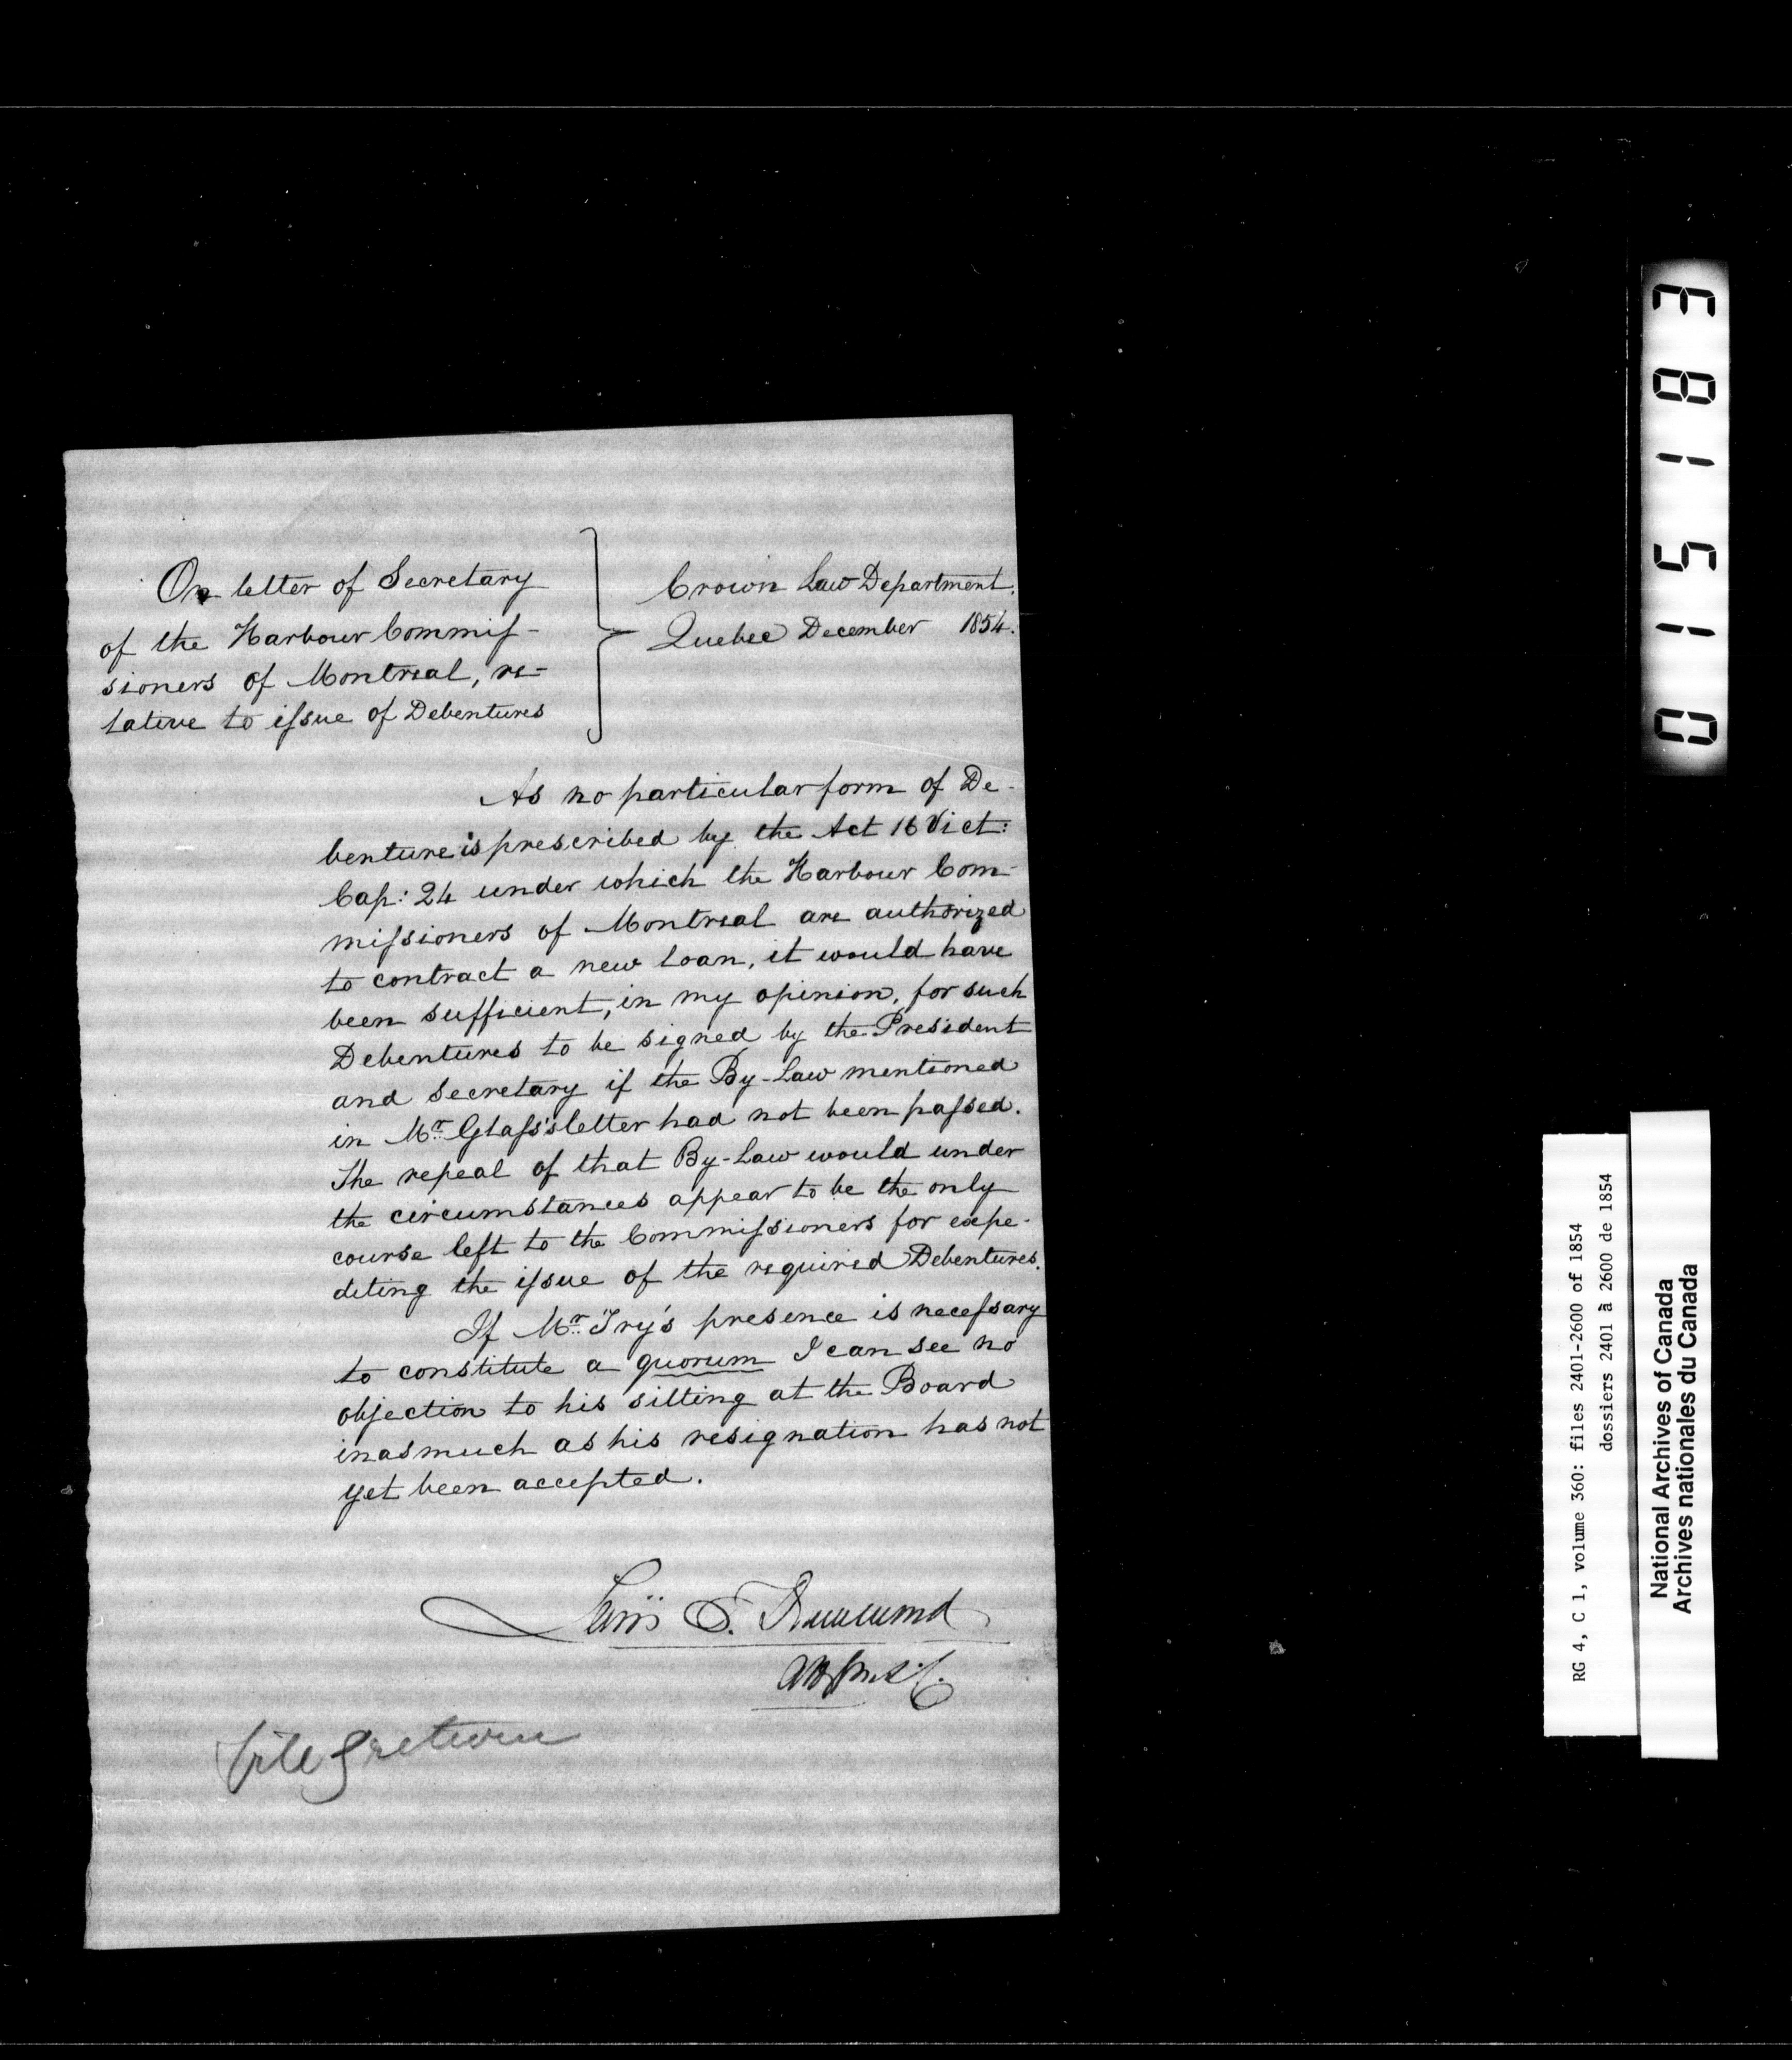 On letter of Secretary
of the Harbour Commis-
sioners of Montreal, re-
lative to issue of Debentures
Crown Law Department.
Quebec December 1854.
As no particular form of De-
benture is prescribed by the Act 16 Vict:
Cap: 24 under which the Harbour Com-
missioners of Montreal are authorized
to contract a new loan, it would have
been sufficient, in my opinion, for such
Debentures to be signed by the President
and Secretary if the By-Law mentioned
in Mr. Glass's letter had not been passed.
The repeal of that By-Law would under
the circumstances appear to be the only
course left to the Commissioners for expe-
diting the issue of the required Debentures.
If Mr. Try's presence is necessary
to constitute a quorum I can see no
objection to his sitting at the Board
inasmuch as his resignation has not
yet been accepted.
Lewis T. Drummond
file & return
015183
RG 4, C 1, volume 360: files 2401-2600 of 1854
dossiers 2401 à 2600 de 1854
National Archives of Canada
Archives nationales du Canada